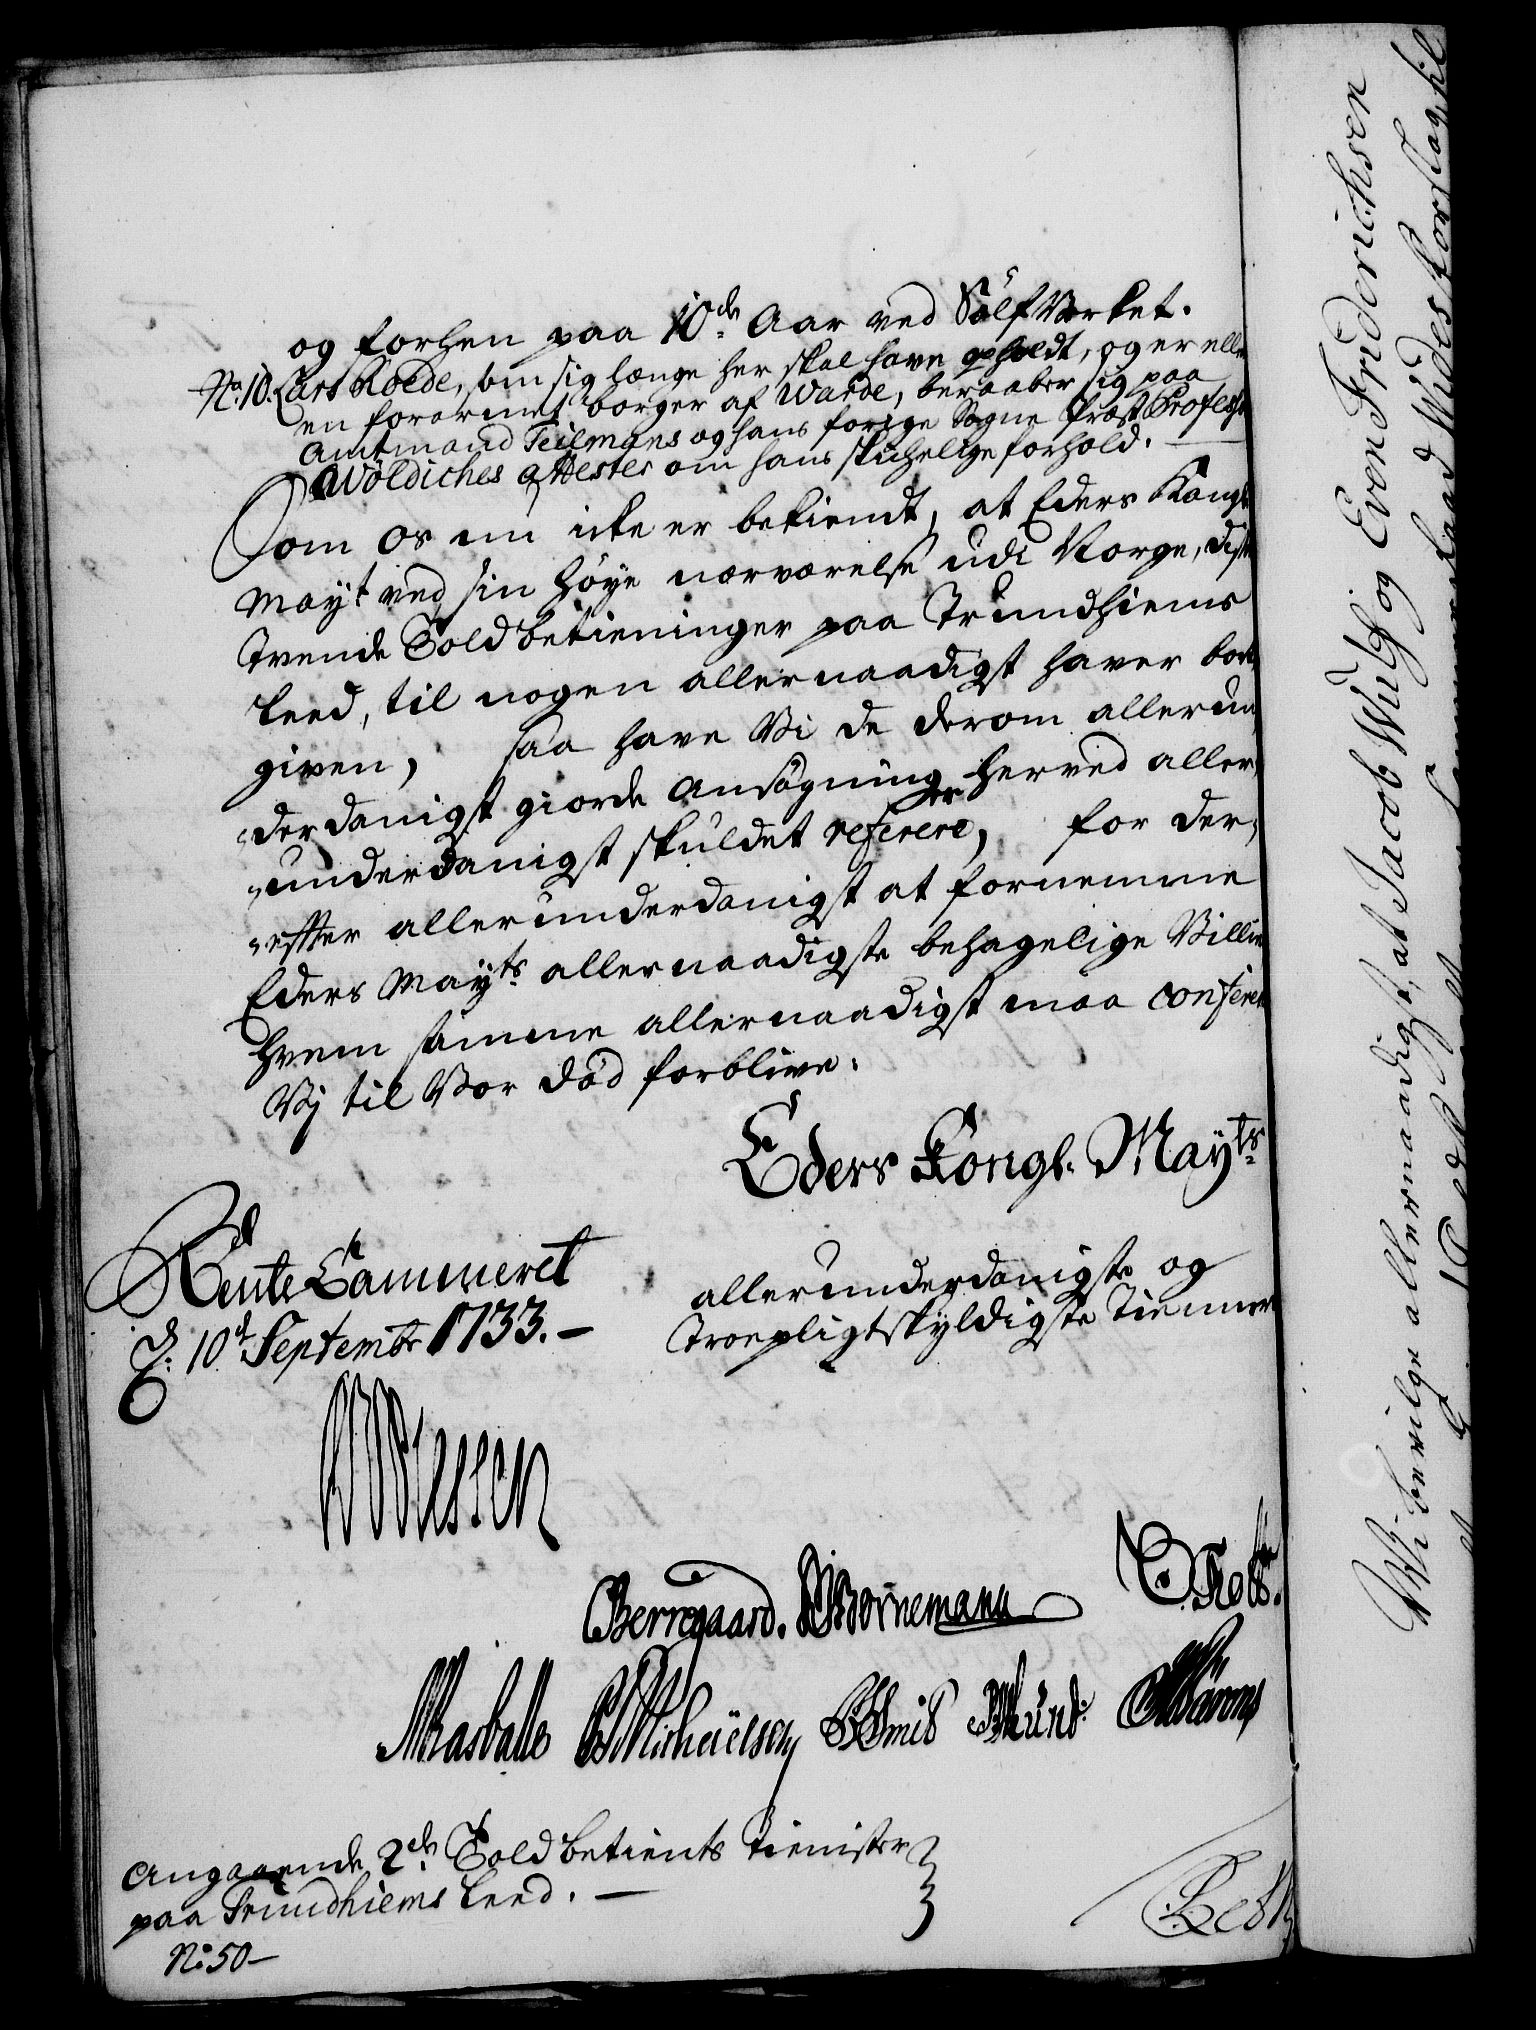 og forhen paa 10de Aar ved Sølf Verket.
No 10. Lars Roede, som sig længe her skal have opholdt, og er elle
en forarmet borger af Warde, beraaber sig paa
Amtmand Teilmans og hans forige Sogne Præst Profess
Wöldiches attester om hans skichelige forhold.
Som os nu icke er bekiendt, at Eders Kongl
Mayt ved sin høye nærværelse udi Norge, disse
tvende Toldbetieninger paa Trundhiems
leed, til nogen allernaadigst haver bort
given, saa have Vi de derom allerun
derdanigst giorde Ansøgninger herved aller,
underdanigst skuldet referere, for der,
effter allerunderdanigst at fornemme
Eders Mayts allernaadigste behagelige Villie
hvem samme allernaadigst maa conferer
Vj til Vor død forblive.
Eders Kongl. Mayts
Rente Cammeret
d. 10d Septembr 1733.
allerunderdanigste og
Troepligtskyldigste Tiennere
Berregaard. Bornemann
Angaaende 2de Toldbetients Tienister
paa Trundhiems leed.
No 50
Vi bevilge allernaadigst, at Jacob Wulf og Even Friderichsen